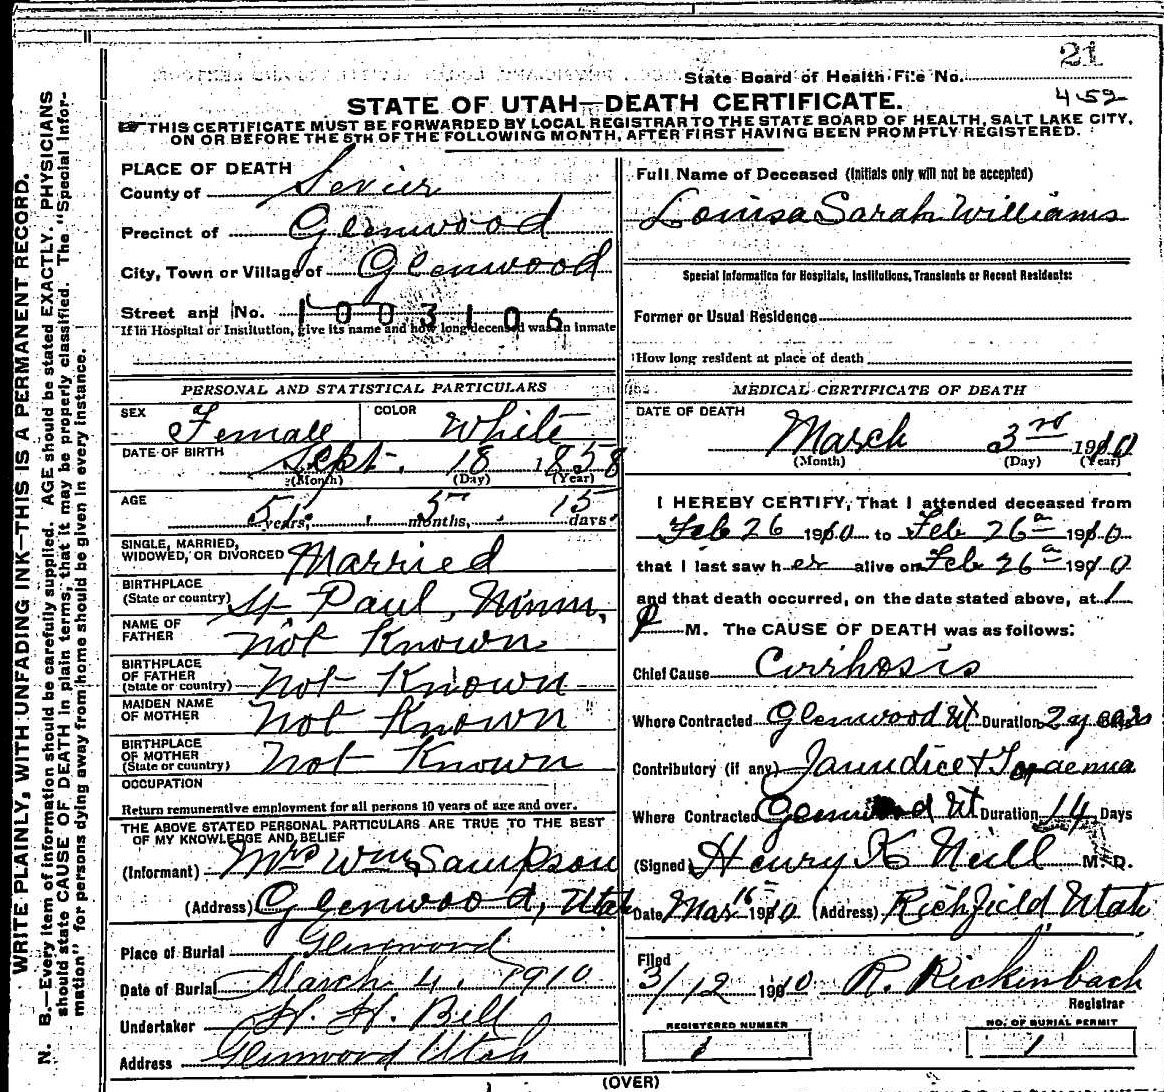 21
State Board of Health File No.
452
STATE OF UTAH—DEATH CERTIFICATE.
THIS CERTIFICATE MUST BE FORWARDED BY LOCAL REGISTRAR TO THE STATE BOARD OF HEALTH, SALT LAKE CITY,
ON OR BEFORE THE 5TH OF THE FOLLOWING MONTH, AFTER FIRST HAVING BEEN PROMPTLY REGISTERED.
WRITE PLAINLY, WITH UNFADING INK—THIS IS A PERMANENT RECORD.
N. B.—Every item of information should be carefully supplied. AGE should be stated EXACTLY. PHYSICIANS
should state CAUSE OF DEATH in plain terms, that it may be properly classified. The "Special Infor-
mation" for persons dying away from home should be given in every instance.
PLACE OF DEATH
County of Sevier
Precinct of Glenwood
City, Town or Village of Glenwood
Street and No. 1003106
If in Hospital or Institution, give its name and how long deceased was an inmate
PERSONAL AND STATISTICAL PARTICULARS
SEX Female COLOR White
DATE OF BIRTH Sept. 18 1858
(Month) (Day) (Year)
AGE 51 years, 5 months, 15 days
SINGLE, MARRIED,
WIDOWED, OR DIVORCED Married
BIRTHPLACE
(State or country) St Paul, Minn,
NAME OF
FATHER not Known
BIRTHPLACE
OF FATHER
(State or country) not Known
MAIDEN NAME
OF MOTHER not Known
BIRTHPLACE
OF MOTHER
(State or country) not Known
OCCUPATION
Return remunerative employment for all persons 10 years of age and over.
THE ABOVE STATED PERSONAL PARTICULARS ARE TRUE TO THE BEST
OF MY KNOWLEDGE AND BELIEF
(Informant) Mrs Wm Sampson
(Address) Glenwood, Utah
Place of Burial Glenwood
Date of Burial March 4, 1910
Undertaker H. H. Bell
Address Glenwood Utah
Full Name of Deceased (Initials only will not be accepted)
Louisa Sarah Williams
Special Information for Hospitals, Institutions, Transients or Recent Residents:
Former or Usual Residence
How long resident at place of death
MEDICAL CERTIFICATE OF DEATH
DATE OF DEATH
March 3rd 1910
(Month) (Day) (Year)
I HEREBY CERTIFY, That I attended deceased from
Feb 26 1910 to Feb 26a 1910
that I last saw her alive on Feb 26a 1910
and that death occurred, on the date stated above, at 1
P M. The CAUSE OF DEATH was as follows:
Chief Cause Cirrhosis
Where Contracted Glenwood Ut Duration 2 years
Contributory (if any) Jaundice +
Where Contracted Glenwood Ut Duration 14 Days
(Signed) Henry K Neill M. D.
Date Mar 16 1910 (Address) Richfield Utah
Filed
3/12 1910 R. Rickenbach
Registrar
REGISTERED NUMBER NO. OF BURIAL PERMIT
1 1
(OVER)